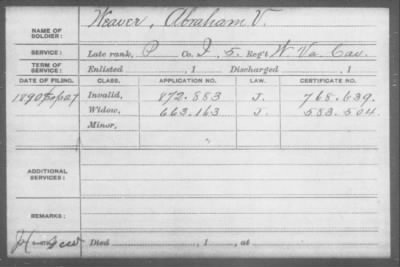 NAME OF SOLDIER: Weaver, Abraham V.
SERVICE: Late rank, P Co. I, 5 Reg't W Va. Cav.
TERM OF SERVICE: Enlisted , 1 Discharged , 1
DATE OF FILING. CLASS. APPLICATION NO. LAW. CERTIFICATE NO.
1890 Invalid, 872.883 J. 768.639
Widow, 663.163 J. 583.504
Minor, "
ADDITIONAL SERVICES:
REMARKS:
Died , 1 , at